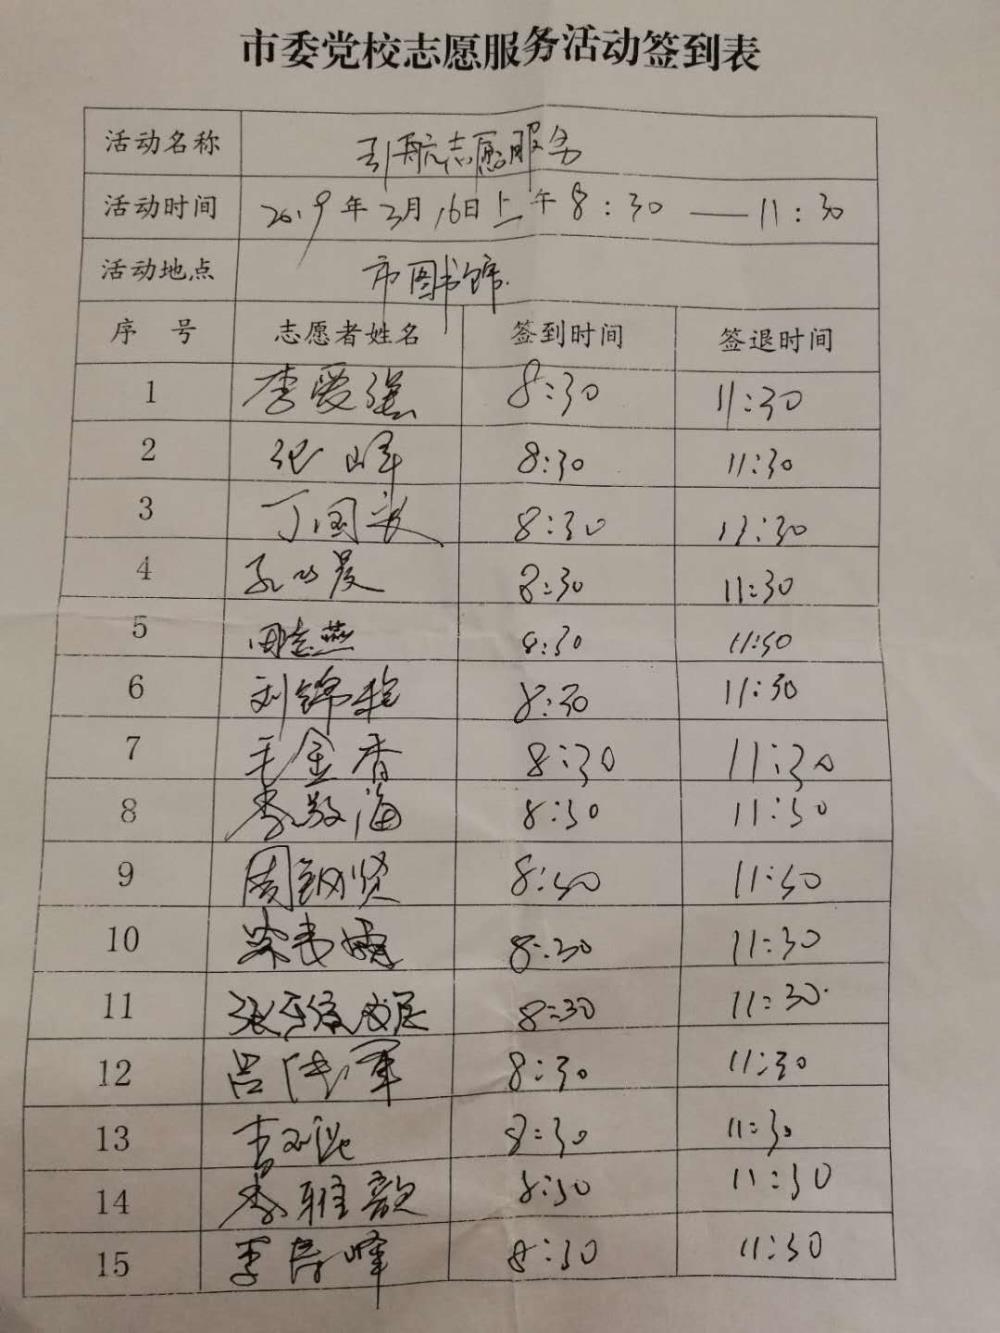 市委党校志愿服务活动签到表
活动名称 引航志愿服务
活动时间 2019年3月16日上午8:30——11:30
活动地点 市图书馆
序号 志愿者姓名 签到时间 签退时间
1 李爱强 8:30 11:30
2 张峰 8:30 11:30
3 丁国 8:30 11:30
4 孔 晨 8:30 11:30
5 田志燕 8:30 11:30
6 刘锦 8:30 11:30
7 毛金香 8:30 11:30
8 李敬海 8:30 11:30
9 周钢贤 8:30 11:30
10 8:30 11:30
11 张 8:30 11:30
12 吕 军 8:30 11:30
13 8:30 11:30
14 李雅歆 8:30 11:30
15 李 峰 8:30 11:30